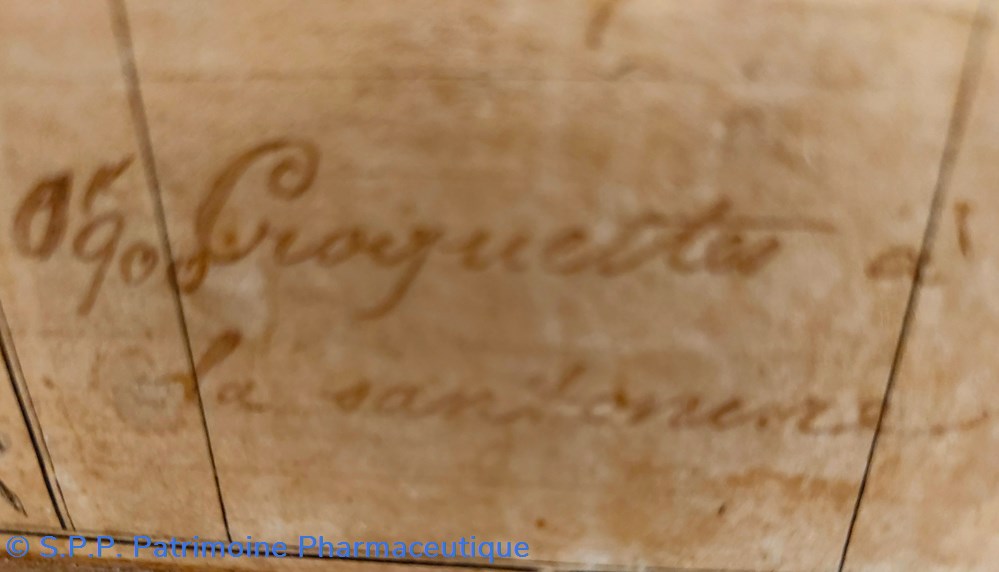 0k900 Croquettes à
la santonine
© S.P.P. Patrimoine Pharmaceutique